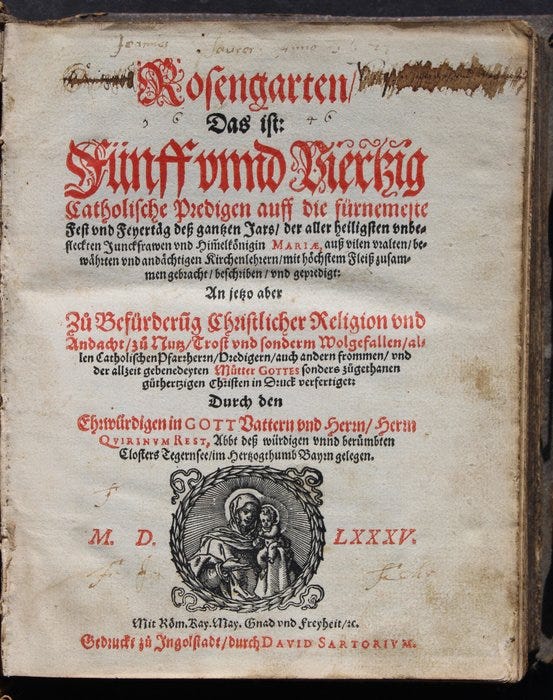 Joannes Saurer Anno
Rosengarten/
Das ist:
Fünff vnnd Viertzig
Catholische Predigen auff die fürnemeste
Fest vnd Feyertäg deß gantzen Jars/ der aller heiligsten vnbe-
fleckten Junckfrawen vnd Him̃elkönigin MARIÆ, auß vilen vralten/ be-
währten vnd andächtigen Kirchenlehrern/ mit höchstem Fleiß zusam-
men gebracht/ beschriben/ vnd gepredigt:
An jetzo aber
Zů Befürderũg Christlicher Religion vnd
Andacht/ zů Nutz/ Trost vnd sonderm Wolgefallen/ al-
len Catholischen Pfarrherrn/ Predigern/ auch andern frommen/ vnd
der allzeit gebenedeyten Můtter GOTTES sonders zůgethanen
gůthertzigen Christen in Druck verfertiget:
Durch den
Ehrwürdigen in GOTT Vattern vnd Herrn/ Herrn
QVIRINVM REST, Abbt deß würdigen vnnd berümbten
Closters Tegernsee/ im Hertzogthumb Bayrn gelegen.
M. D. LXXXV.
Mit Röm. Kay. May. Gnad vnd Freyheit/ ꝛc.
Gedruckt zů Ingolstadt/ durch DAVID SARTORIVM.